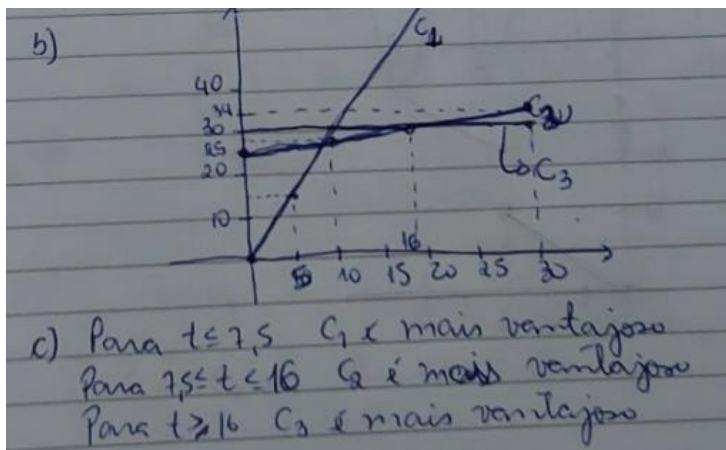 b)
C1
40
34
30
25
20
10
C3
16
5 10 15 20 25 30
c) Para t ≤ 7,5 C1 é mais vantajoso
Para 7,5 ≤ t ≤ 16 C2 é mais vantajoso
Para t ≥ 16 C3 é mais vantajoso